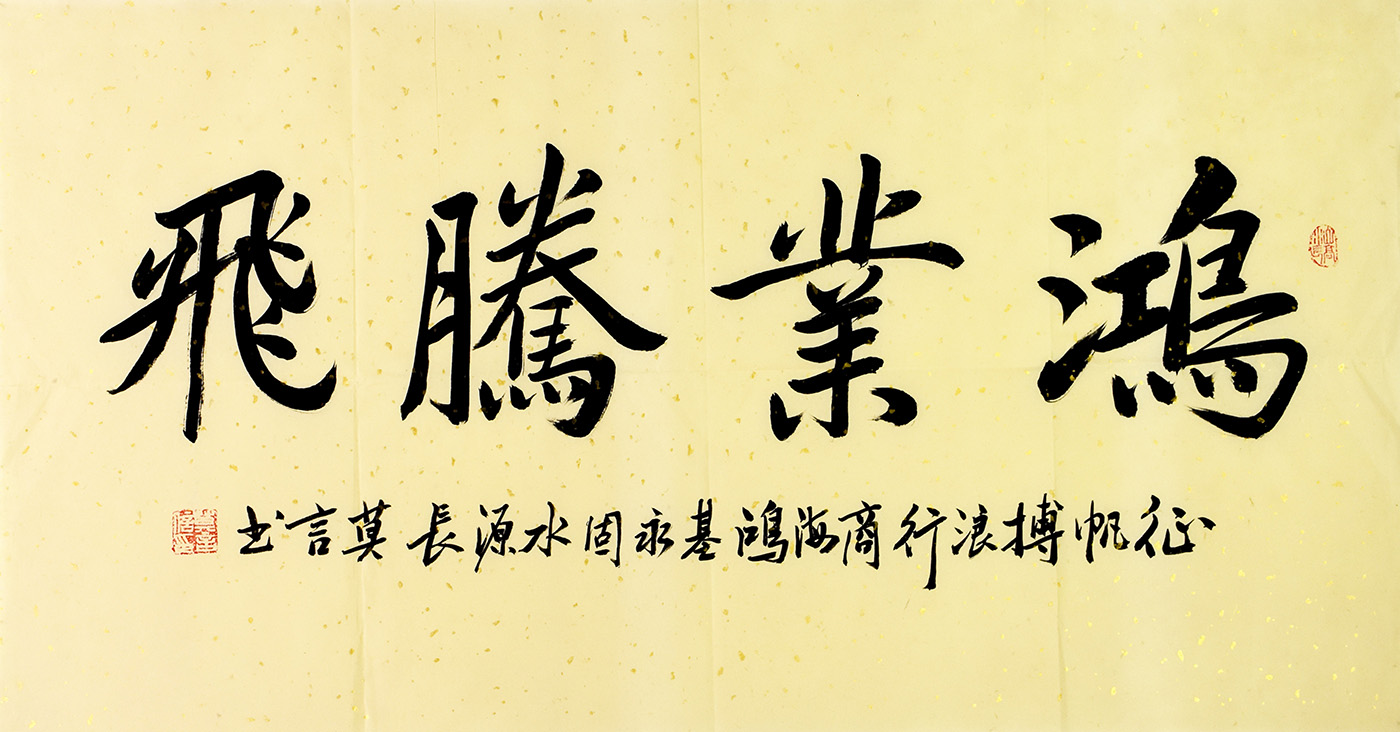 鴻業騰飛
征帆搏浪行商海鴻基永固水源長莫言书